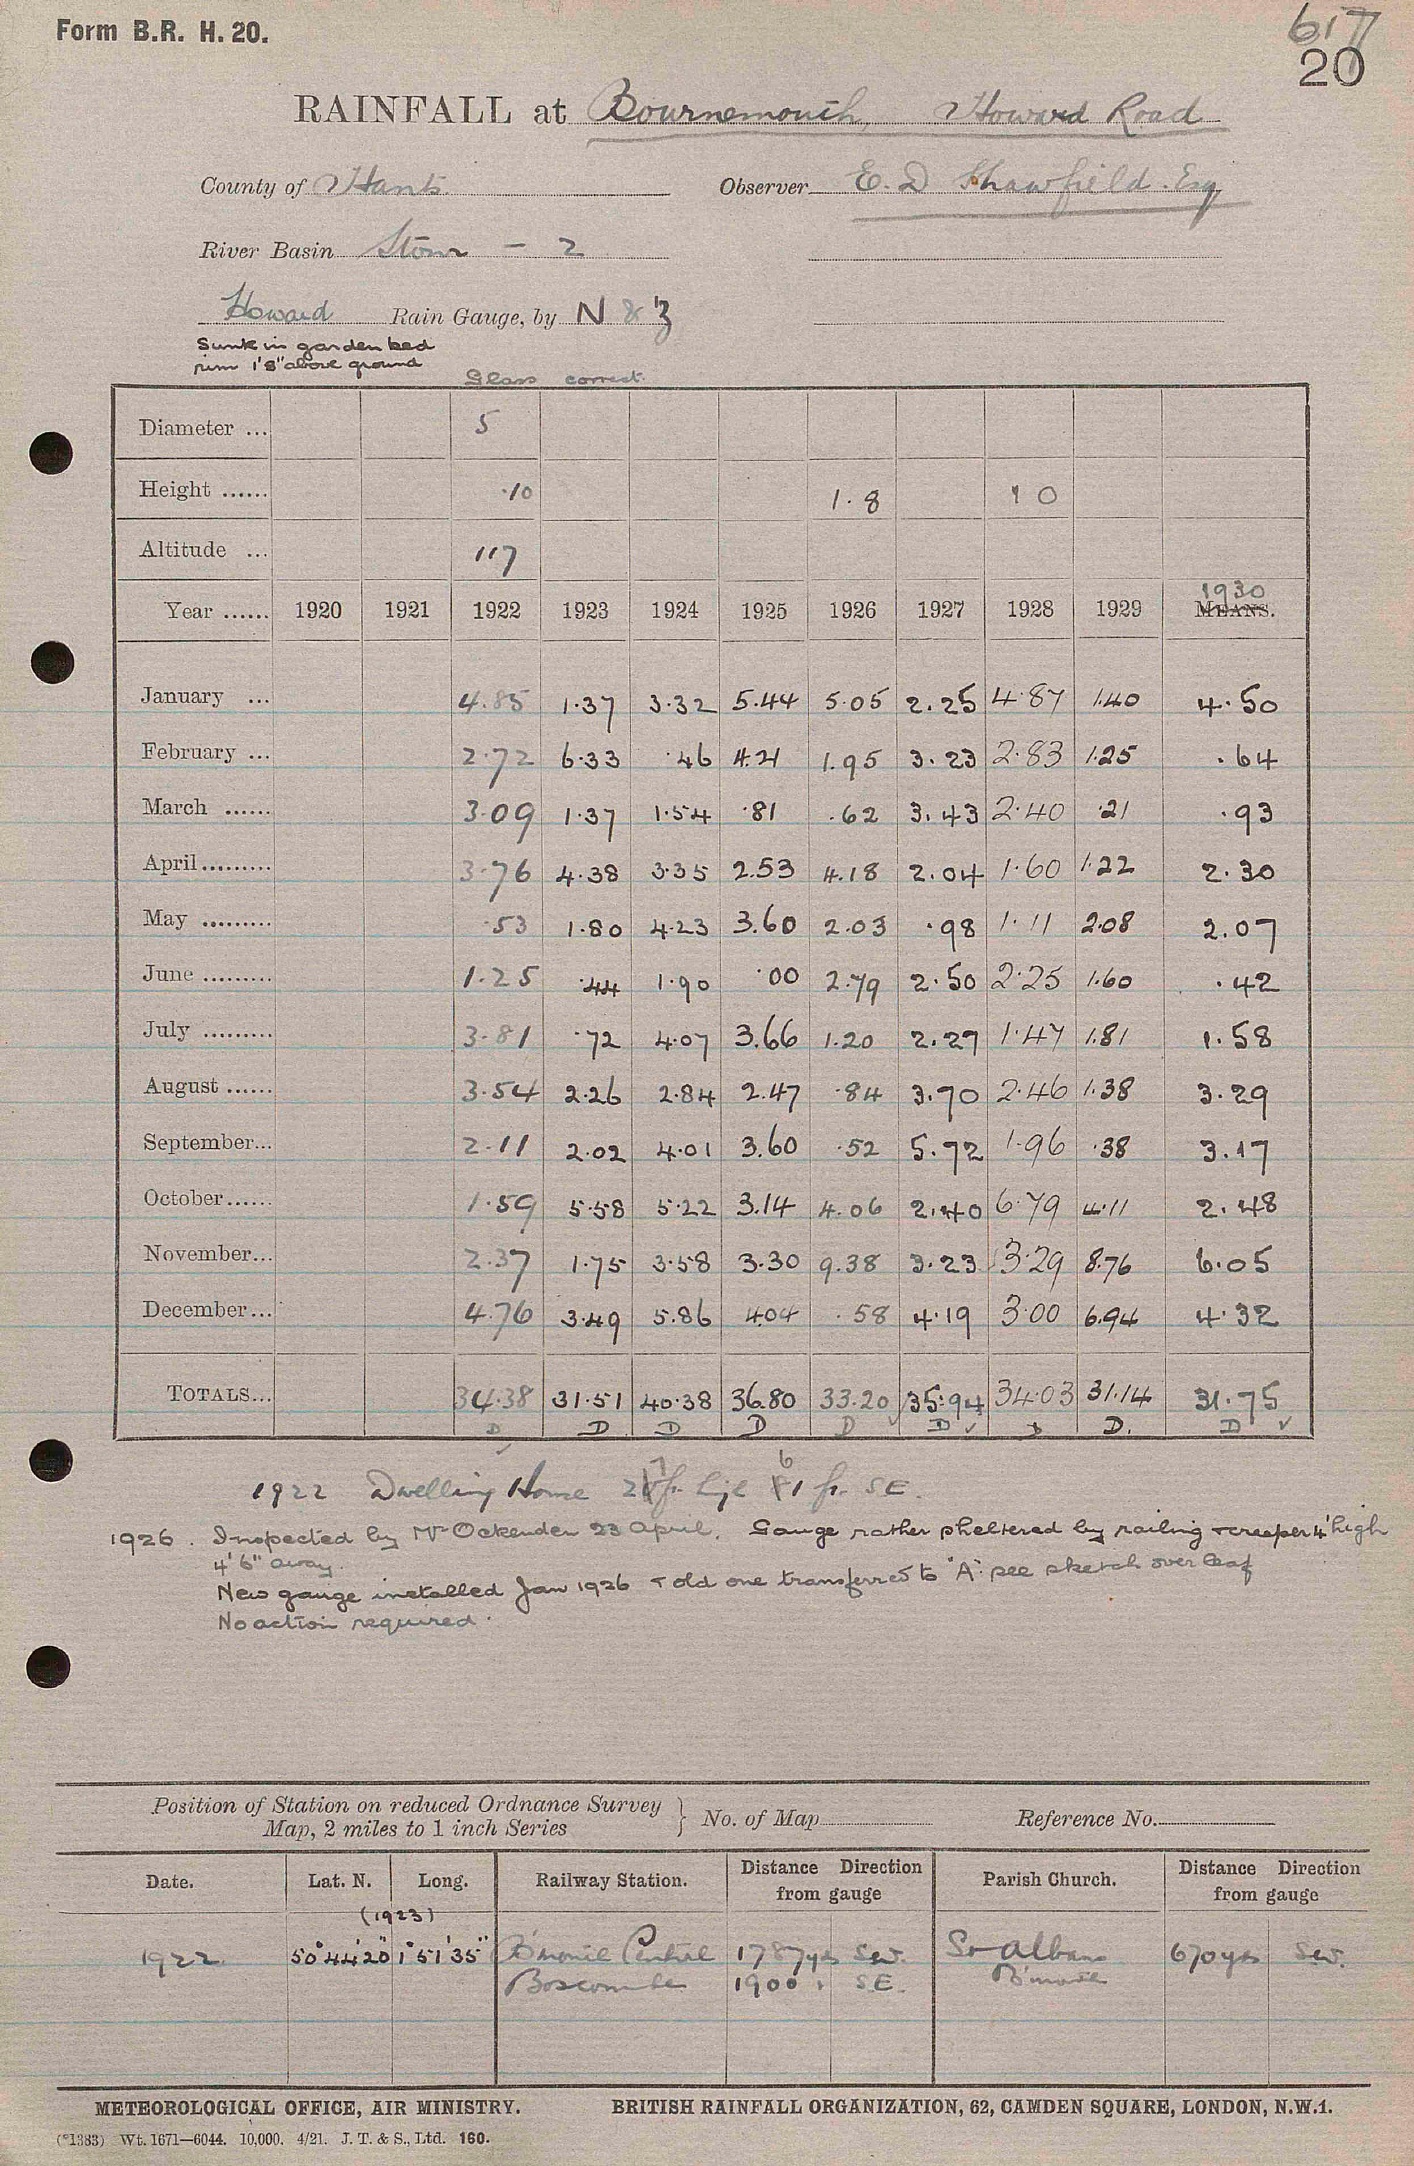 Form B.R. H. 20.
617
20
RAINFALL at Bournemouth, Howard Road
County of Hants. Observer E. D Shawfield. Esq
River Basin Stour - 2
Howard Rain Gauge, by N & Z
Sunk in garden bed
rim 1'8" above ground
Glass correct.
Diameter ... 5
Height ...... .10 1.8 1 0
Altitude ... 117
1930
Year ...... 1920 1921 1922 1923 1924 1925 1926 1927 1928 1929 MEANS.
January ... 4.85 1.37 3.32 5.44 5.05 2.25 4.87 1.40 4.50
February ... 2.72 6.33 .46 4.21 1.95 3.23 2.83 1.25 .64
March ...... 3.09 1.37 1.54 .81 .62 3.43 2.40 .21 .93
April......... 3.76 4.38 3.35 2.53 4.18 2.04 1.60 1.22 2.30
May ......... .53 1.80 4.23 3.60 2.03 .98 1.11 2.08 2.07
June ......... 1.25 .44 1.90 .00 2.79 2.50 2.25 1.60 .42
July ......... 3.81 .72 4.07 3.66 1.20 2.27 1.47 1.81 1.58
August ...... 3.54 2.26 2.84 2.47 .84 3.70 2.46 1.38 3.29
September... 2.11 2.02 4.01 3.60 .52 5.72 1.96 .38 3.17
October...... 1.59 5.58 5.22 3.14 4.06 2.40 6.79 4.11 2.48
November... 2.37 1.75 3.58 3.30 9.38 3.23 3.29 8.76 6.05
December... 4.76 3.49 5.86 4.04 .58 4.19 3.00 6.94 4.32
TOTALS... 34.38 31.51 40.38 36.80 33.20 35.94 34.03 31.14 31.75
D D D D D D D D. D
1922 Dwelling House ft. high ft. SE.
1926. Inspected by Mr Ockenden 23 April. Gauge rather sheltered by railing + creeper 4' high
4'6" away.
New gauge installed Jan 1926 + old one transferred to "A" see sketch over leaf
No action required.
Position of Station on reduced Ordnance Survey
Map, 2 miles to 1 inch Series } No. of Map Reference No.
Date. Lat. N. Long. Railway Station. Distance Direction from gauge Parish Church. Distance Direction from gauge
(1923)
1922 50°44'20" 1°51'35" B'mouth Central 1787 yds SW. St Albans 670 yds SW.
Boscombe 1900 " SE. B'mouth
METEOROLOGICAL OFFICE, AIR MINISTRY. BRITISH RAINFALL ORGANIZATION, 62, CAMDEN SQUARE, LONDON, N.W.1.
(*1383) Wt. 1671—6044. 10,000. 4/21. J. T. & S., Ltd. 160.